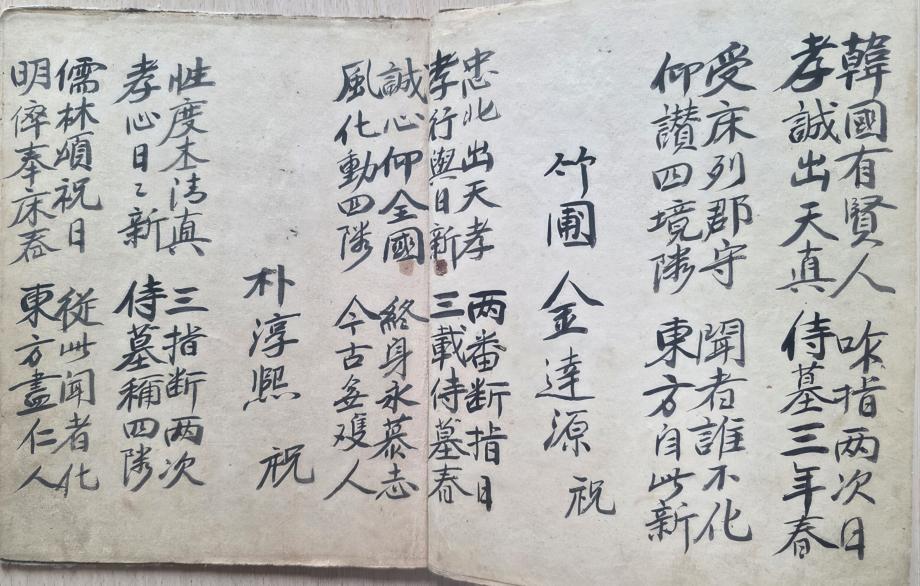 韓國有賢人 咋指两次日
孝誠出天真 侍墓三年春
受床列郡守 聞者誰不化
仰讃四境隣 東方自此新
竹圃 金達源 祝
忠北出天孝 两番断指日
孝行與日新 三載侍墓春
誠心仰全國 終身永慕志
風化動四隣 今古無雙人
朴淳熙 祝
性度本清真 三指断两次
孝心日々新 侍墓稱四隣
儒林頌祝日 從此聞者化
明倅奉床春 東方盡仁人